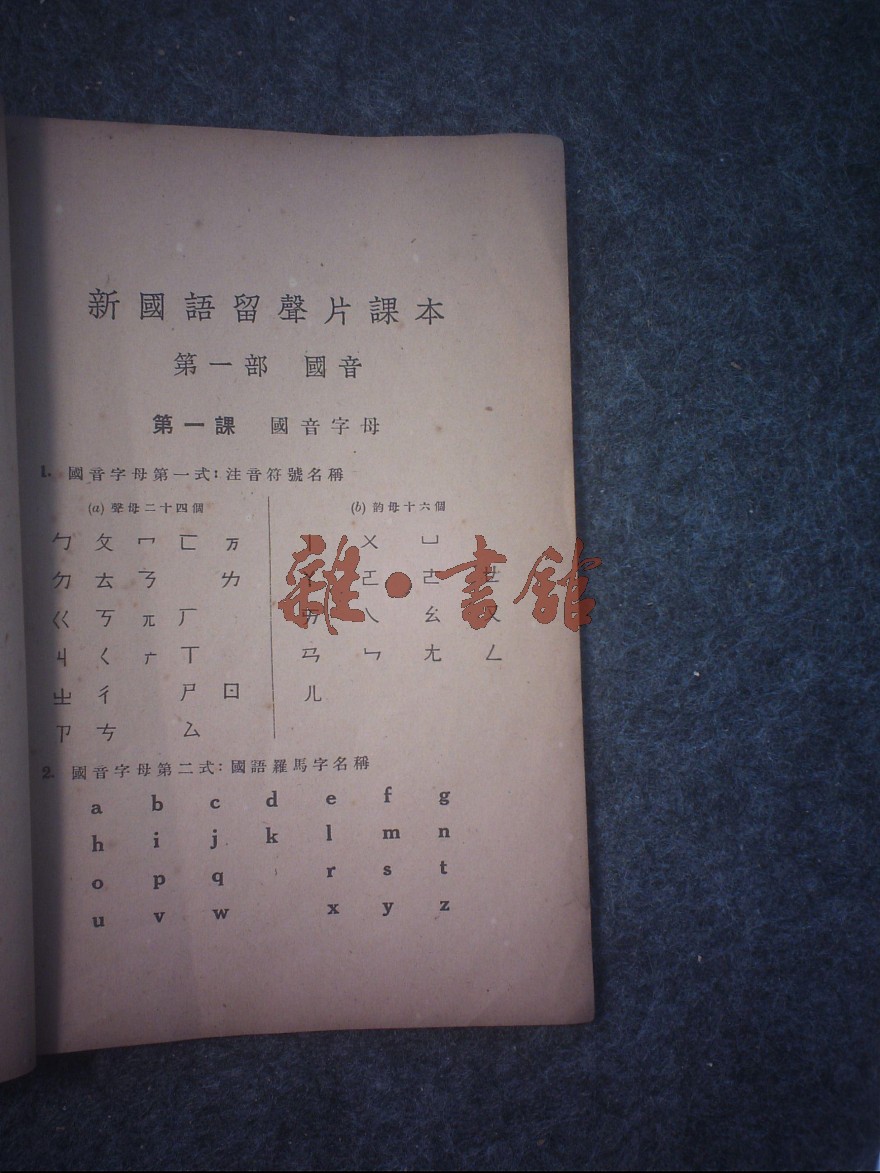 新國語留聲片課本
第一部 國音
第一課 國音字母
1. 國音字母第一式：注音符號名稱
(a) 聲母二十四個
ㄅ ㄆ ㄇ ㄈ ㄪ
ㄉ ㄊ ㄋ ㄌ
ㄍ ㄎ ㄫ ㄏ
ㄐ ㄑ ㄬ ㄒ
ㄓ ㄔ ㄕ ㄖ
ㄗ ㄘ ㄙ
(b) 韵母十六個
ㄧ ㄨ ㄩ
ㄚ ㄛ ㄜ ㄝ
ㄞ ㄟ ㄠ ㄡ
ㄢ ㄣ ㄤ ㄥ
ㄦ
雜·書館
2. 國音字母第二式：國語羅馬字名稱
a b c d e f g
h i j k l m n
o p q r s t
u v w x y z